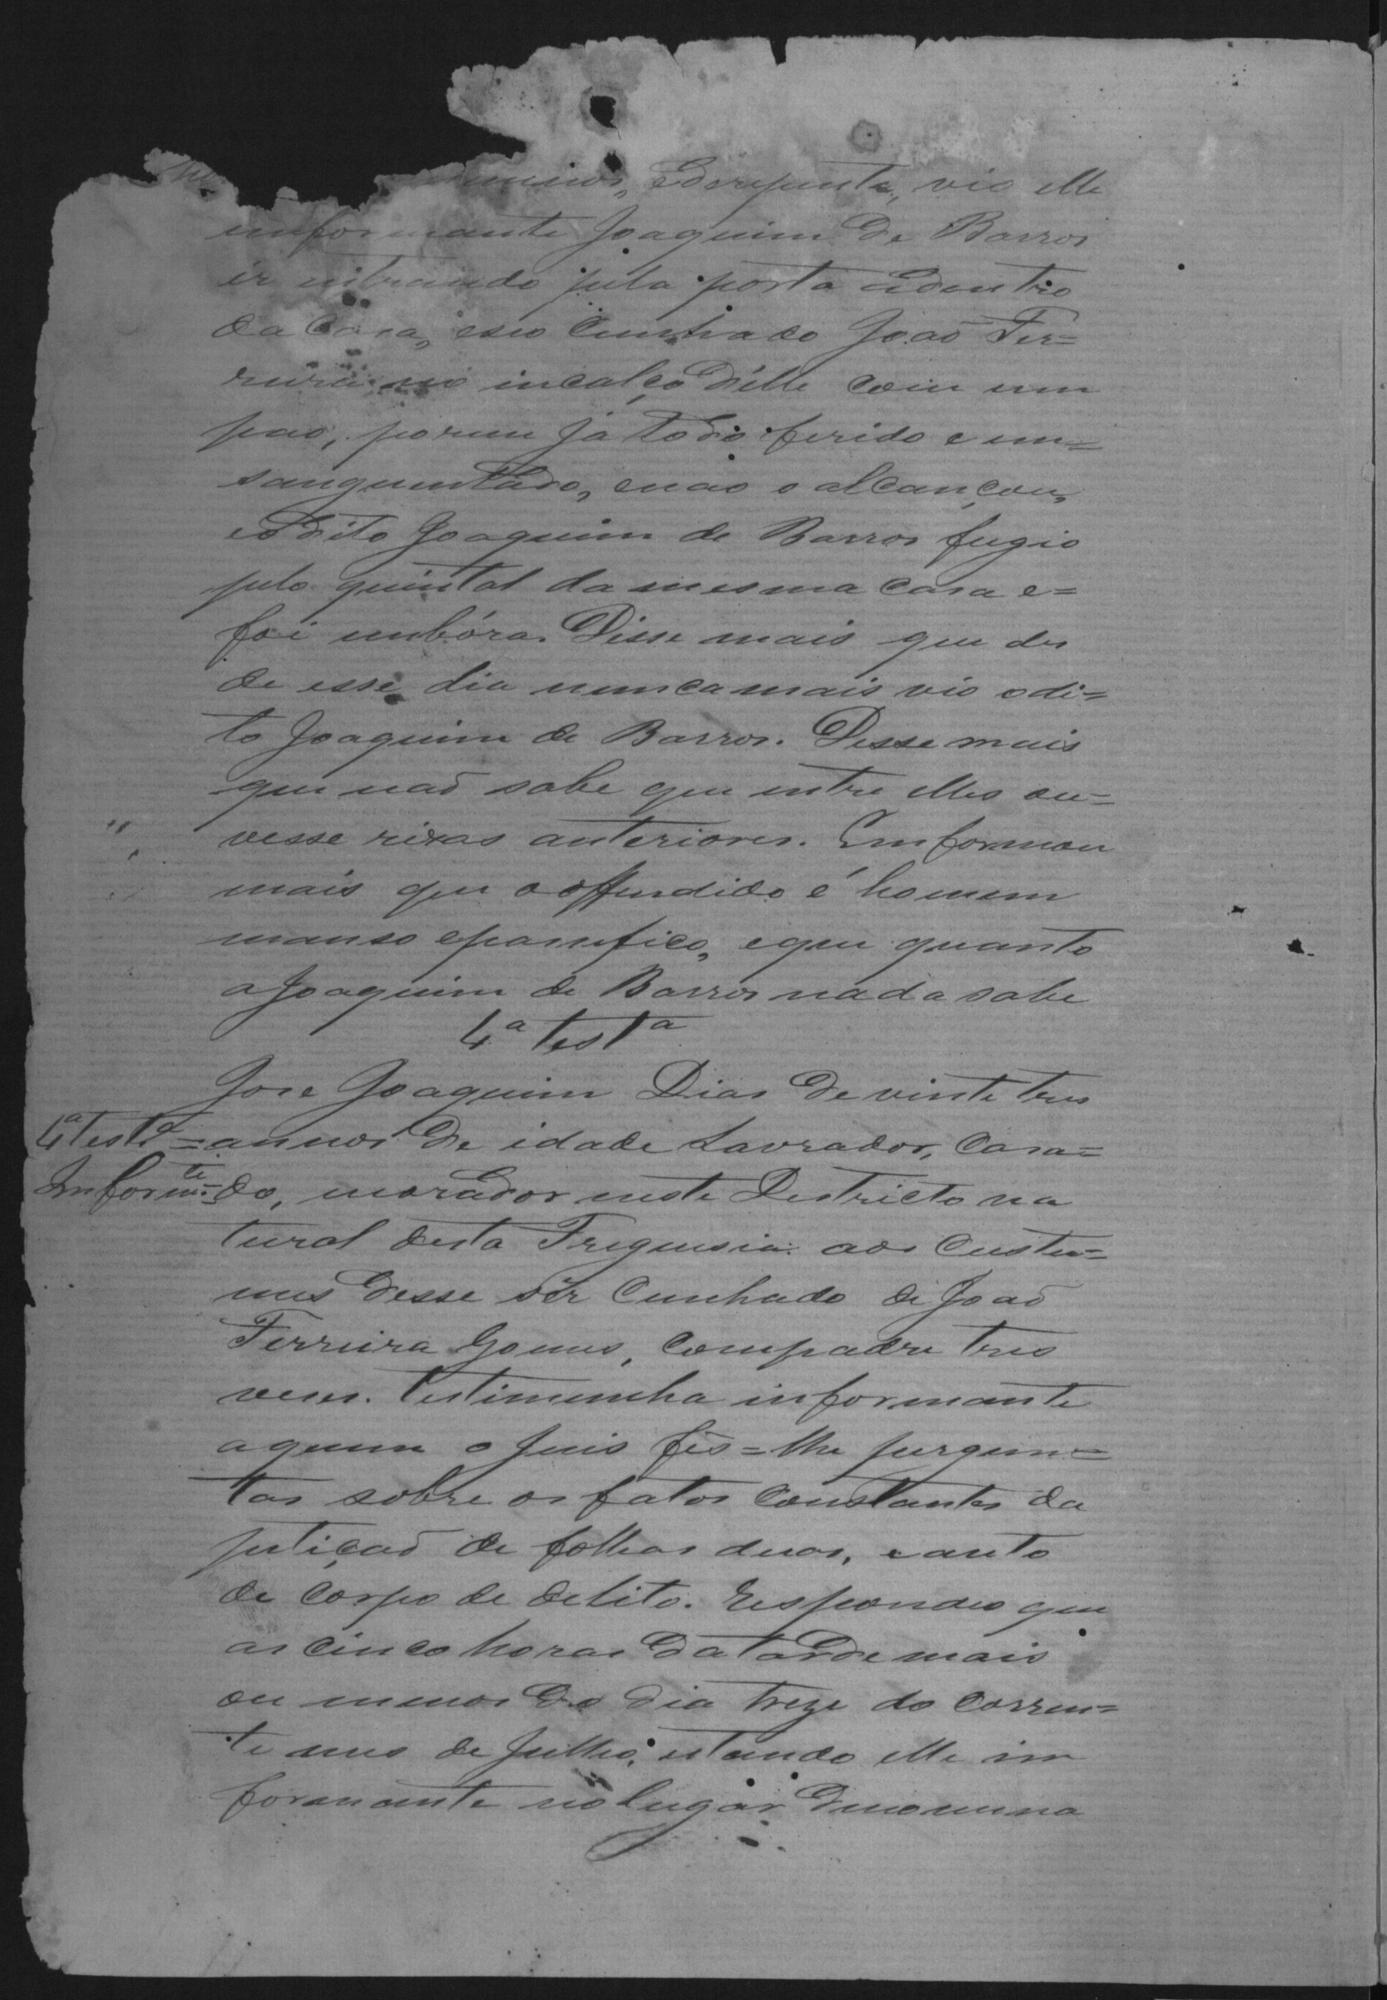 meninos, ederepente, vio elle
imformante Joaquim de Barros
ir entrando pela porta adentro
da Casa, eseo Cunhado Joaõ Fer=
reira no incalço d'elle com um
pao, porem já todo ferido e em=
sanguentado, enao o alcançou,
eodito Joaquim de Barros fugio
pelo quintal da mesma Casa e=
foi embóra. Disse mais que des
de esse dia nunca mais vio odi=
to Joaquim de Barros. Desse mais
que naõ sabe que entre elles ou=
vesse rixas anteriores. Emformou
mais que o offendido é homem
manso epassifico, eque quanto
a Joaquim de Barros nada sabe
4ª testª
Jose Joaquim Dias de vinte tres
4ª testª = annos de idade Lavrador, Casa=
Informte. = do, morador neste Destricto na
tural desta Freguesia aos Custu=
mes desse sêr Cunhado de Joaõ
Ferreira Gomes, Compadre tres
veses. Testimunha informante
aquem o Juis fês=lhe pergun=
tas sobre os fatos Constantes da
petiçaõ de folhas duas, e auto
de Corpo de delito. Respondeo que
as cinco horas da tarde mais
ou menos do dia treze do Corren=
te mes de Julho, estando elle im
formante no lugar denomina